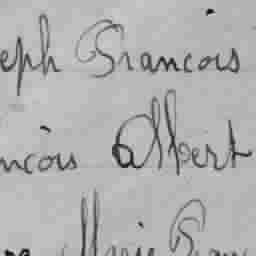 eph Francois
ncois Albert
Marie Fran